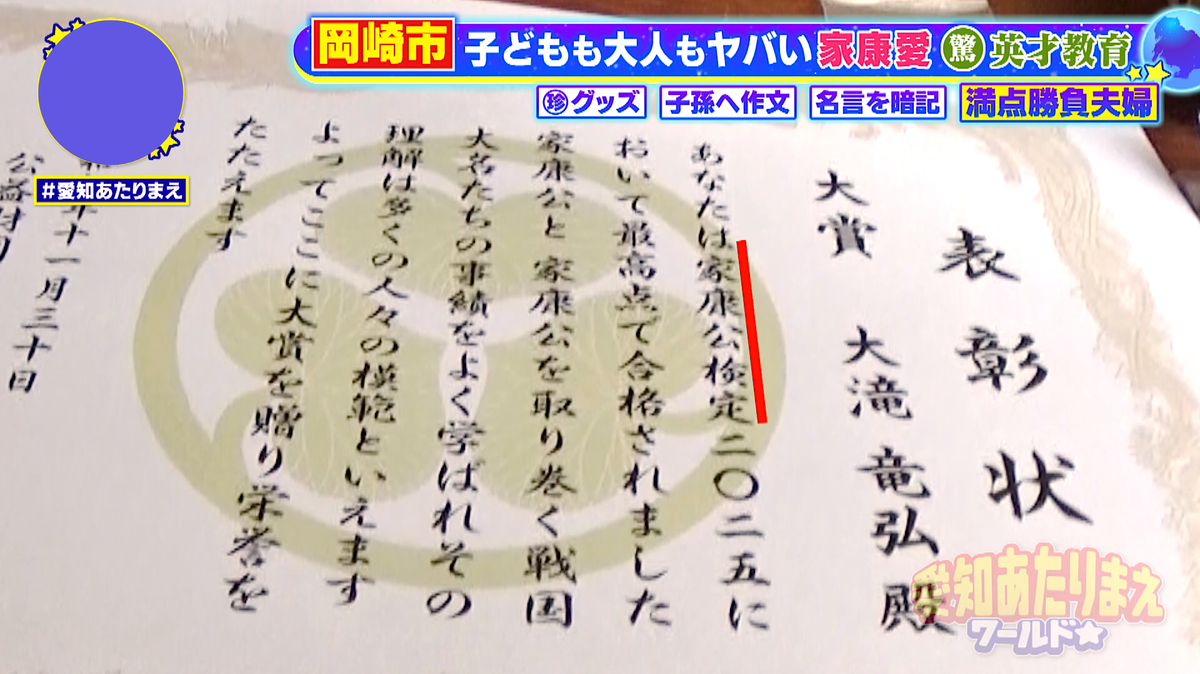 岡崎市 子どもも大人もヤバい 家康愛 驚 英才教育
珍グッズ 子孫へ作文 名言を暗記 満点勝負夫婦
#愛知あたりまえ
表彰状
大賞 大滝竜弘殿
あなたは家康公検定二〇二五に
おいて最高点で合格されました
家康公と家康公を取り巻く戦国
大名たちの事績をよく学ばれその
理解は多くの人々の模範といえます
よってここに大賞を贈り栄誉を
たたえます
年十一月三十日
愛知あたりまえ
ワールド☆